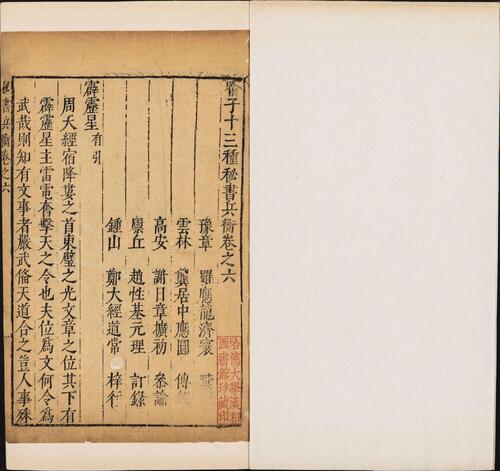 喻子十三種秘書兵衡卷之六
豫章 羅應龍濟寰
雲林 龔居中應圓 傳
高安 謝日章擴初 叅論
廪丘 趙性基元理 訂錄
鍾山 鄭大經道常 梓行
霹靂星 有引
周天經宿降婁之首東璧之光文章之位其下有
霹靂星主雷電奮擊天之令也夫位爲文何令爲
武哉則知有文事者嚴武俻天道合之豈人事殊
秘書兵衡卷之六
哈佛大學漢和
圖書館珍藏印